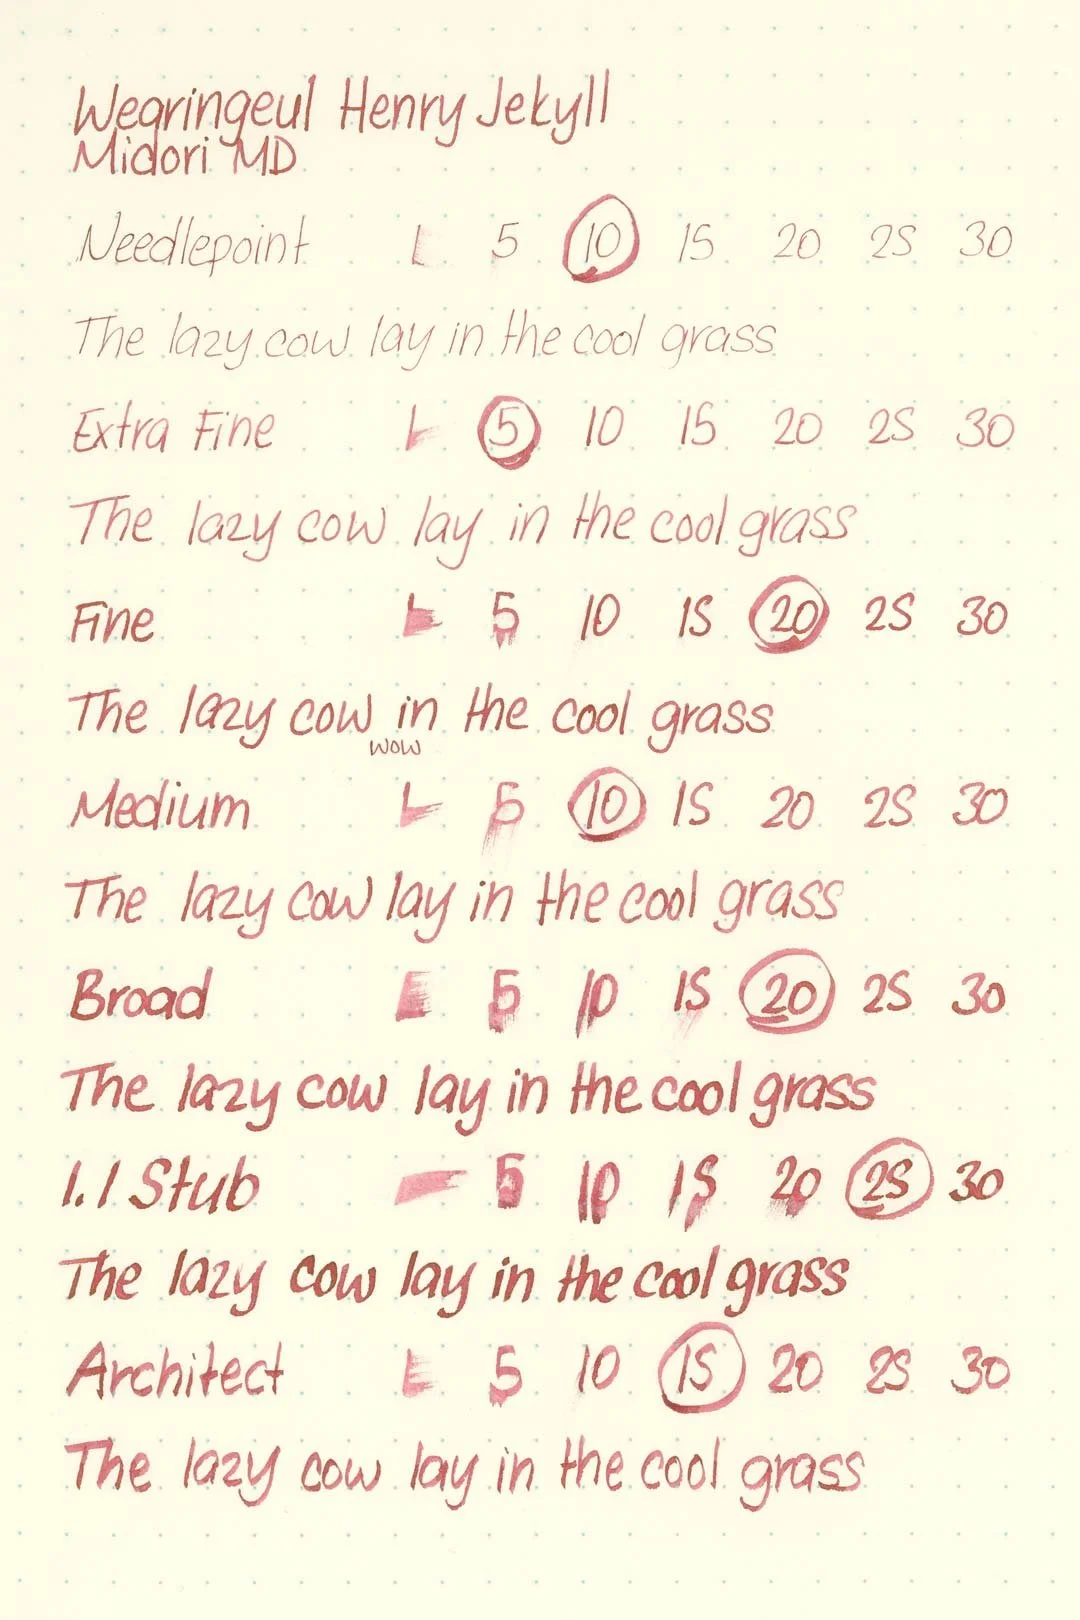 Wearingeul Henry Jekyll
Midori MD
Needlepoint 1 5 10 15 20 25 30
The lazy cow lay in the cool grass
Extra Fine 1 5 10 15 20 25 30
The lazy cow lay in the cool grass
Fine 1 5 10 15 20 25 30
The lazy cow in the cool grass
wow
Medium 1 5 10 15 20 25 30
The lazy cow lay in the cool grass
Broad 1 5 10 15 20 25 30
The lazy cow lay in the cool grass
1.1 Stub 5 10 15 20 25 30
The lazy cow lay in the cool grass
Architect 1 5 10 15 20 25 30
The lazy cow lay in the cool grass